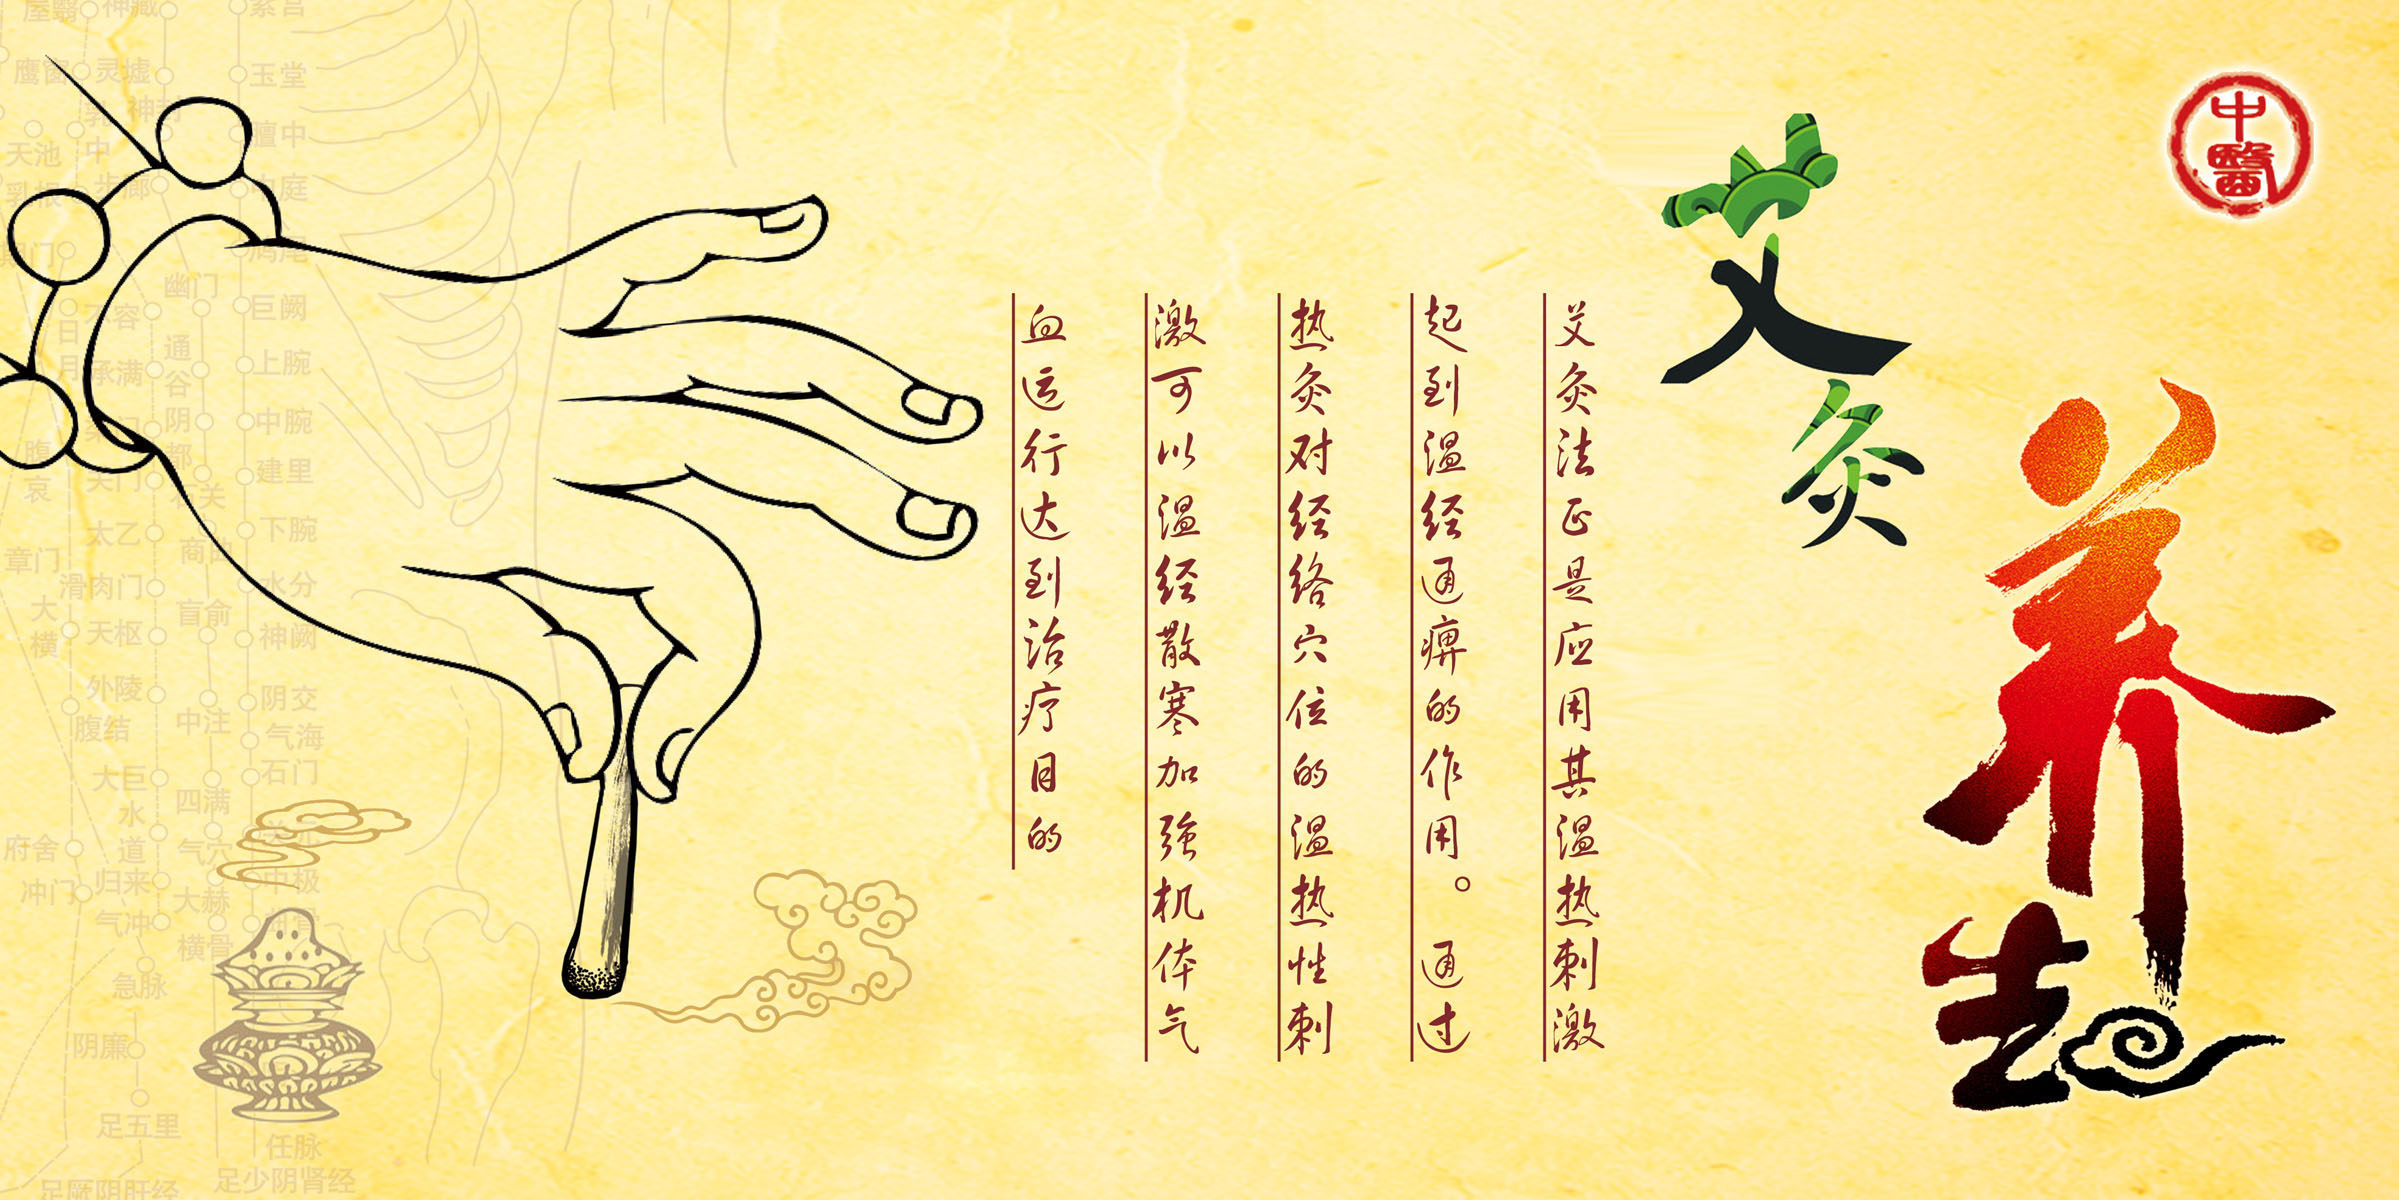 中醫
艾灸
养生
艾灸法正是应用其温热刺激
起到温经通痹的作用。通过
热灸对经络穴位的温热性刺
激可以温经散寒加强机体气
血运行达到治疗目的
神藏
灵墟
玉堂
膻中
天池
中庭
鸠尾
幽门
巨阙
上腕
通谷
承满
中腕
阴都
建里
腹哀
关门
下腕
太乙
商曲
章门
水分
滑肉门
肓俞
大横
天枢
神阙
外陵
阴交
中注
腹结
气海
石门
大巨
四满
水道
府舍
气穴
归来
中极
冲门
大赫
气冲
横骨
急脉
阴廉
足五里
任脉
足少阴肾经
足厥阴肝经